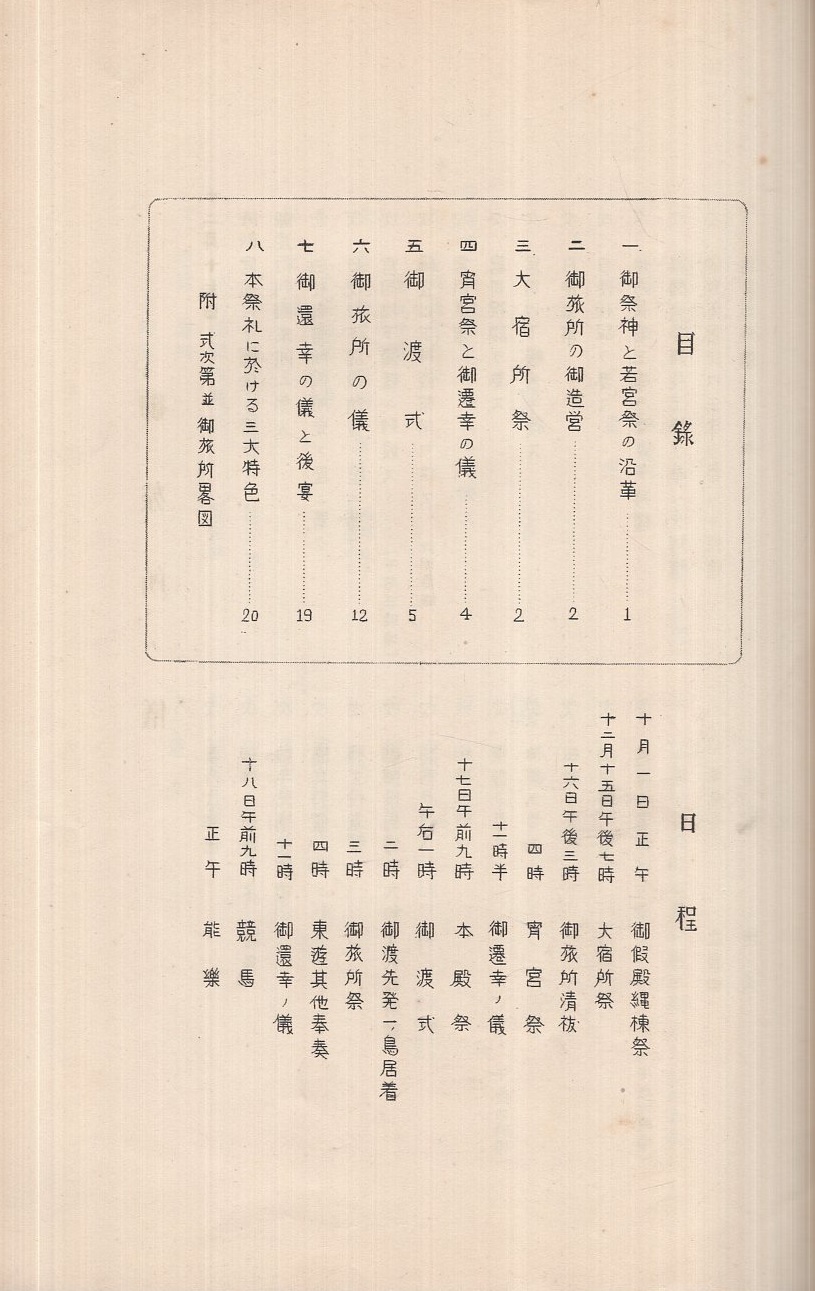 目錄
一 御祭神と若宮祭の沿革 1
二 御旅所の御造営 2
三 大宿所祭 2
四 宵宮祭と御遷幸の儀 4
五 御渡式 5
六 御旅所の儀 12
七 御還幸の儀と後宴 19
八 本祭礼に於ける三大特色 20
附 式次第並御旅所畧図
日程
十月一日正午 御假殿縄棟祭
十二月十五日午後七時 大宿所祭
十六日午後三時 御旅所清祓
四時 宵宮祭
十一時半 御遷幸ノ儀
十七日午前九時 本殿祭
午后一時 御渡式
二時 御渡先発一ノ鳥居着
三時 御旅所祭
四時 東遊其他奉奏
十一時 御還幸ノ儀
十八日午前九時 競馬
正午 能樂